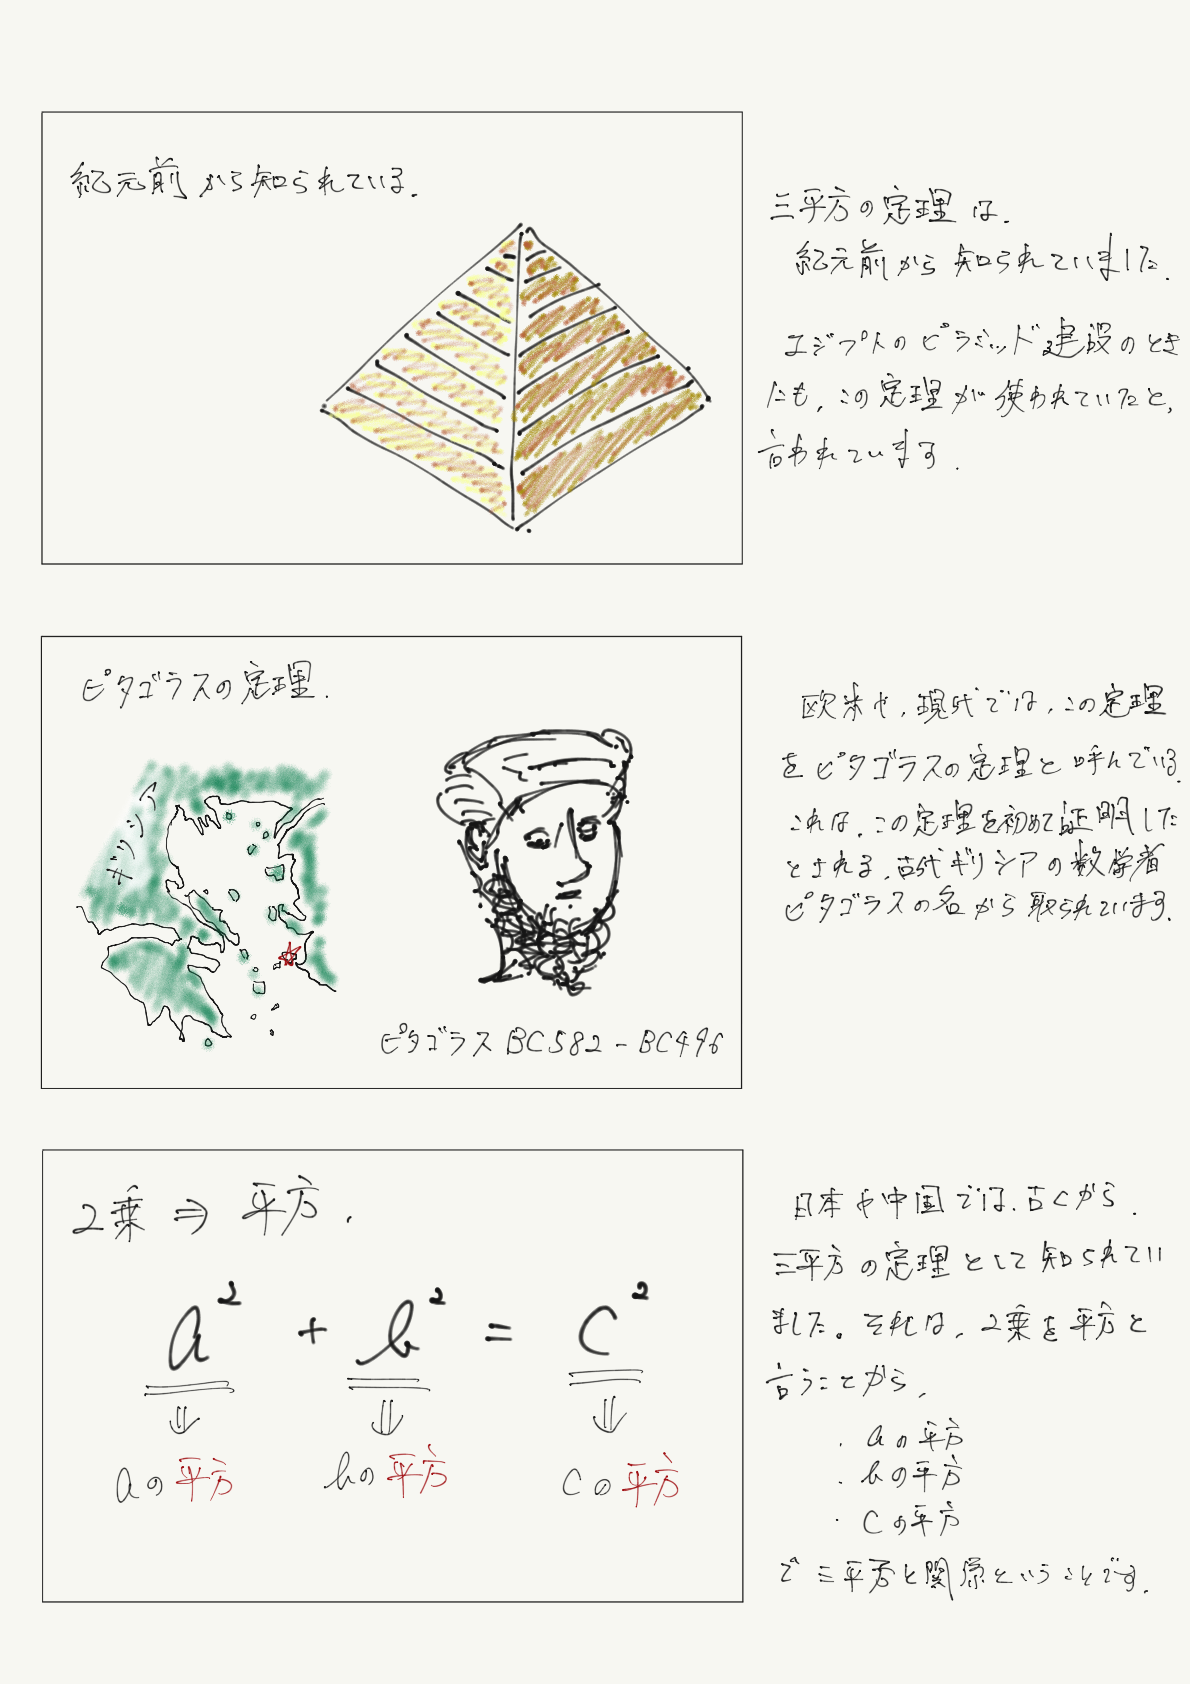 紀元前から知られている.
三平方の定理は.
紀元前から知られていました.
エジプトのピラミッド建設のとき
にも,この定理が使われていたと,
言われています.
ピタゴラスの定理.
ギリシア
ピタゴラス BC582 - BC496
欧米や,現代では,この定理
をピタゴラスの定理と呼んでいる.
これは,この定理を初めて証明した
とされる,古代ギリシアの数学者
ピタゴラスの名から取られています.
2乗 ⇒ 平方.
a² + b² = c²
⇓ ⇓ ⇓
aの平方 bの平方 cの平方
日本や中国では,古くから.
三平方の定理として知られてい
ました。それは,2乗を平方と
言うことから,
・aの平方
・bの平方
・cの平方
で三平方と関係ということです.